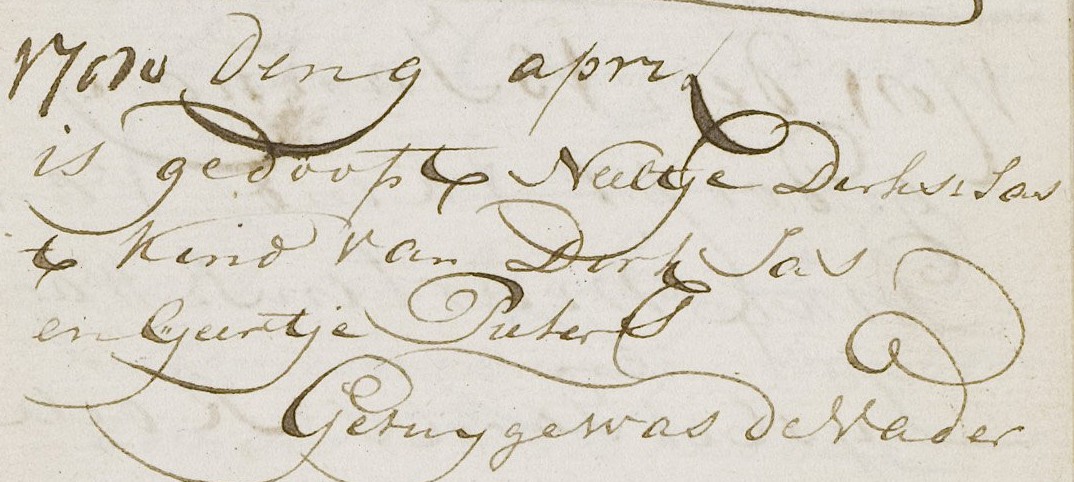 den 9 april
is gedoopt Neeltje Dirks Jas
t kind van Dirk Jas
en Geertje Pieters
Getuyge was de Vader